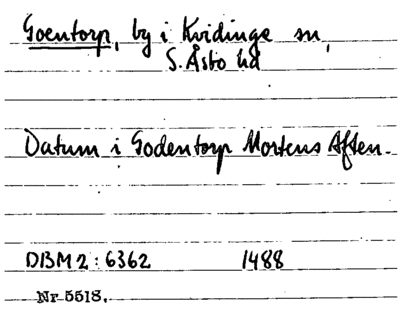 Goentorp, by i Kvidinge sn,
S. Åsbo hd
Datum i Godentorp Mortens Aften.
DBM 2: 6362 1488
Nr 5518.